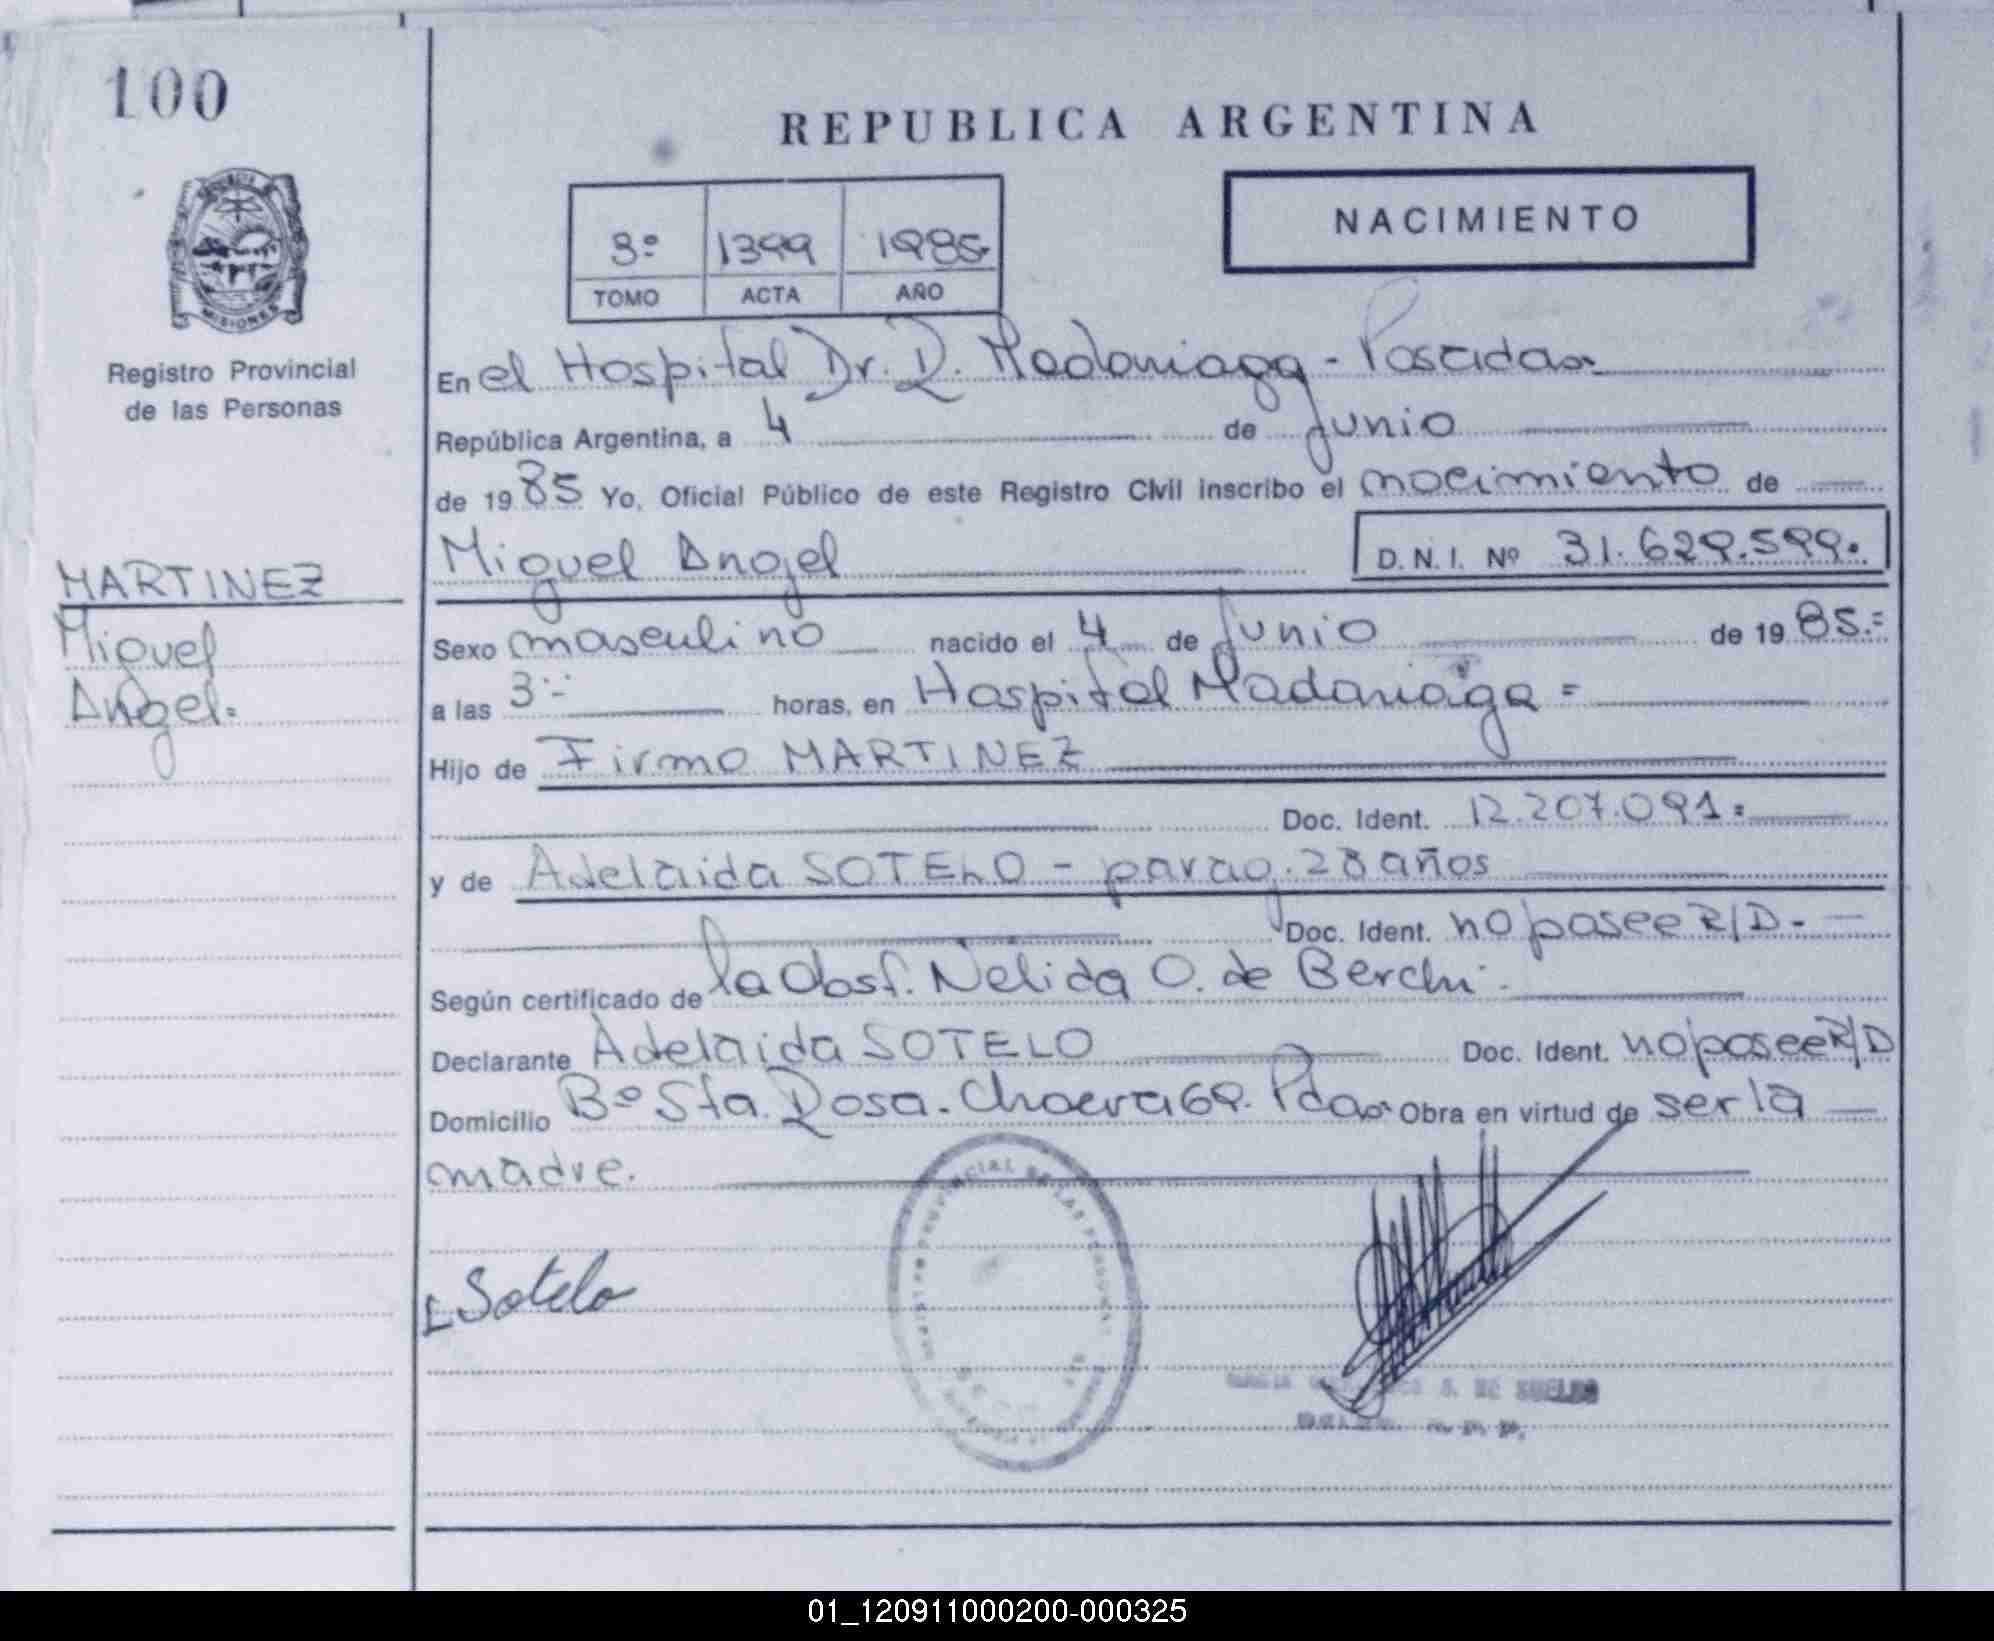 100
REPUBLICA ARGENTINA
NACIMIENTO
3º 1399 1985
TOMO ACTA AÑO
MISIONES
Registro Provincial
de las Personas
En el Hospital Dr. R. Madariaga - Posadas
República Argentina, a 4 de Junio
de 1985 Yo, Oficial Público de este Registro Civil inscribo el nacimiento de
Miguel Angel D.N.I. Nº 31.629.599.
MARTINEZ
Miguel
Angel=
Sexo masculino nacido el 4 de Junio de 1985.=
a las 3 horas, en Hospital Madariaga =
Hijo de Firmo MARTINEZ
Doc. Ident. 12.207.091=
y de Adelaida SOTELO - parag. 28 años
Doc. Ident. no posee R/D.-
Según certificado de la Obst. Nelida O. de Berchi.
Declarante Adelaida SOTELO Doc. Ident. no posee R/D
Domicilio Bº Sta. Rosa. Chacra 69. Pdas. Obra en virtud de ser la
madre.
Sotelo
S. DE SUELDO